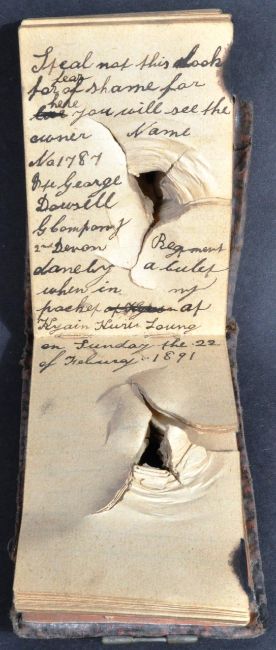 Steal not this Book
fear
for of shame for
here
you will see the
owner Name
No 1787
Pte George
Dowsell
G Company
2nd Devon Regment
done by a bulet
when in my
pocket at
Kyain Kurn Loung
on Sunday the 22
of Feburey 1891